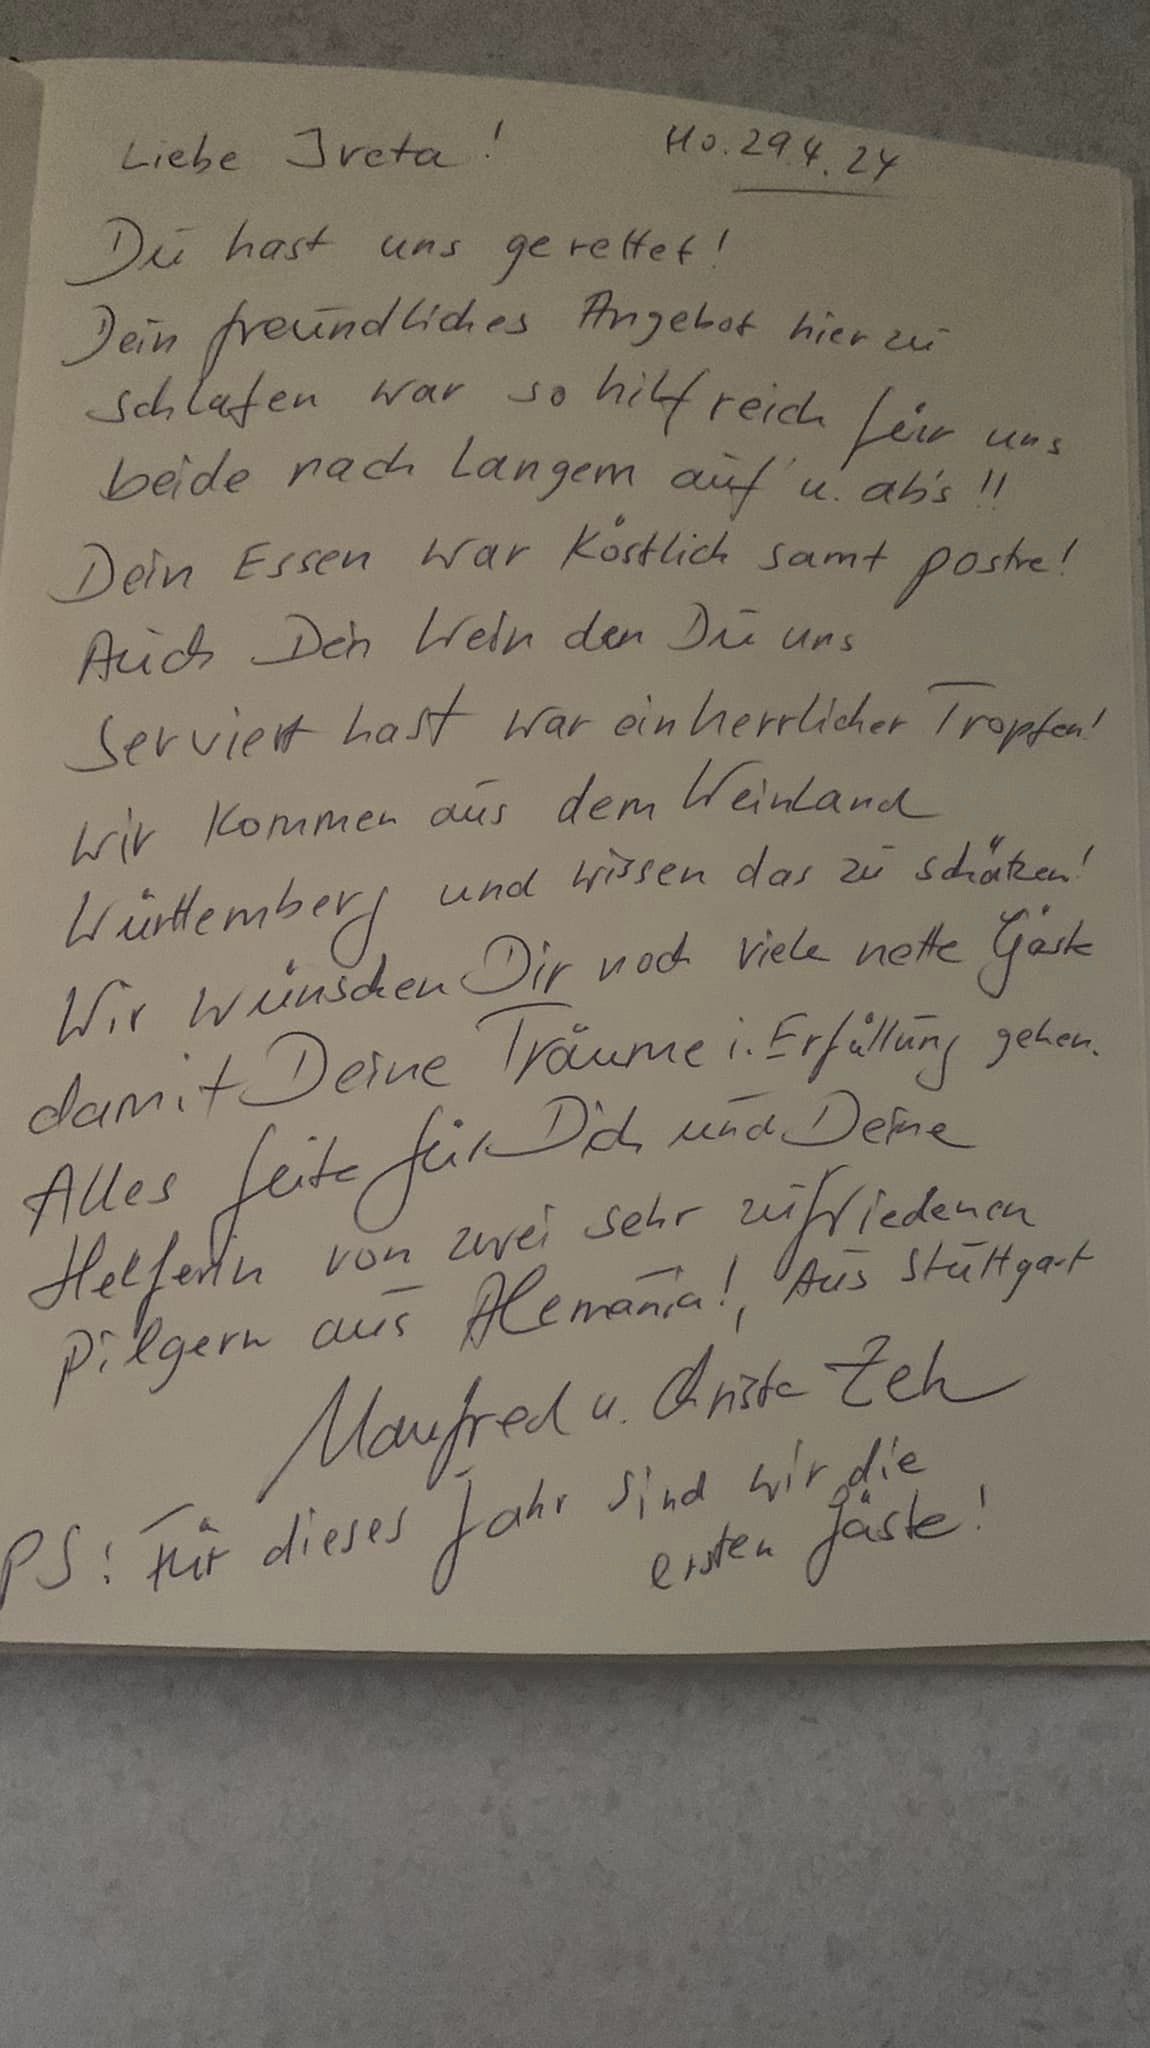 Liebe Ireta! Mo. 29.4.24
Du hast uns gerettet!
Dein freundliches Angebot hier zu
schlafen war so hilfreich für uns
beide nach langem auf u. ab's!!
Dein Essen war köstlich samt postre!
Auch Dein Wein den Du uns
serviert hast war ein herrlicher Tropfen!
Wir kommen aus dem Weinland
Württemberg und wissen das zu schätzen!
Wir wünschen Dir noch viele nette Gäste
damit Deine Träume i. Erfüllung gehen.
Alles für Dich und Deine
Helferin von zwei sehr zufriedenen
Pilgern aus Alemania!, Aus Stuttgart
Manfred u. Christa Zeh
PS: Für dieses Jahr sind wir die
ersten Gäste!